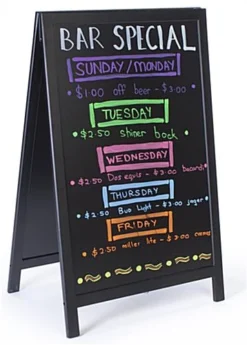 BAR SPECIAL
SUNDAY/MONDAY
• $1.00 off beer - $3.00
TUESDAY
• $2.50 shiner bock •
WEDNESDAY
• $2.50 Dos equis - $3.00 bacardi
THURSDAY
• $2.50 Bud Light - $3.00 jager
FRIDAY
• $2.50 miller lite - $3.00